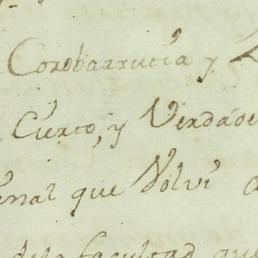 Corobarrutia y
Cierto, y Verdade
nal que Volvi a
dela facultad que